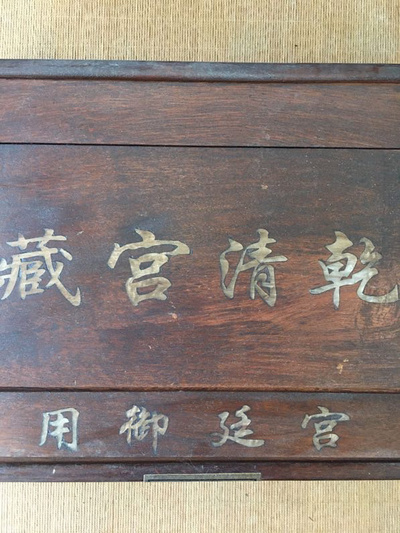 乾清宮藏
宮廷御用